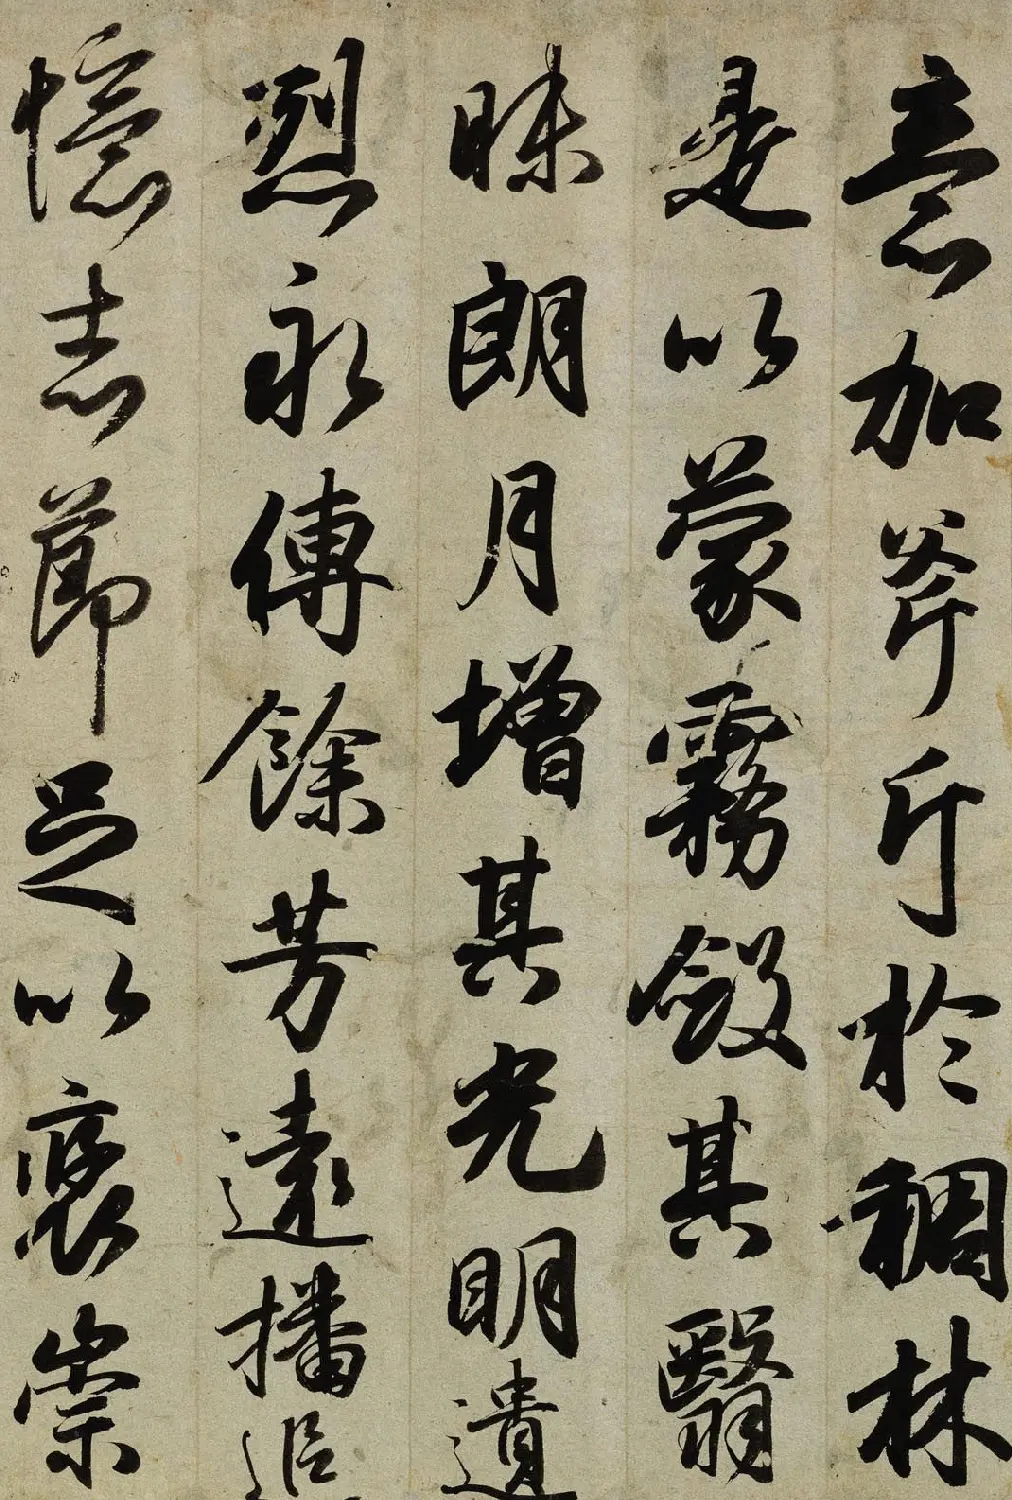 意加斧斤於稠林
是以蒙霧斂其翳
昧朗月增其光明遺
烈永傳餘芳遠播追
憶志節足以褒崇